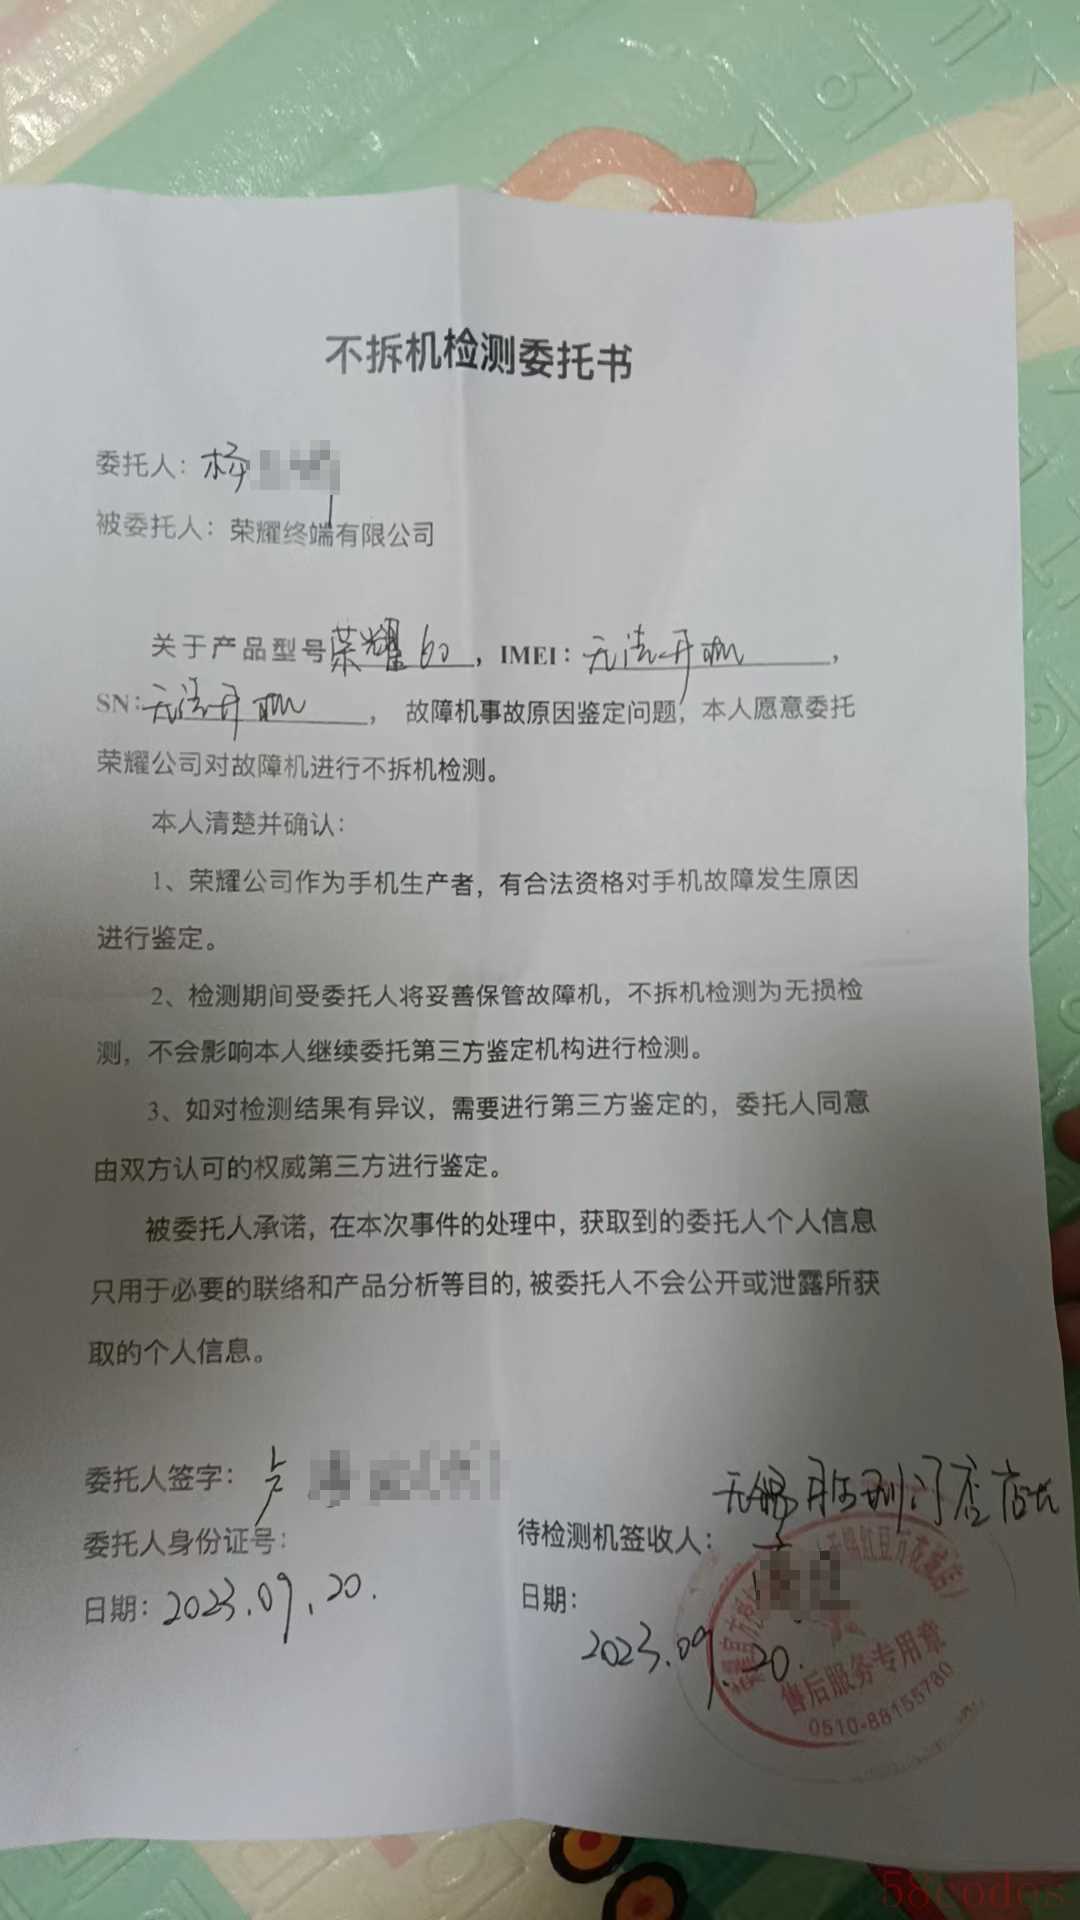 不拆机检测委托书
委托人：杨
被委托人：荣耀终端有限公司
关于产品型号荣耀60，IMEI：无法开机，
SN：无法开机，故障机事故原因鉴定问题，本人愿意委托
荣耀公司对故障机进行不拆机检测。
本人清楚并确认：
1、荣耀公司作为手机生产者，有合法资格对手机故障发生原因
进行鉴定。
2、检测期间受委托人将妥善保管故障机，不拆机检测为无损检
测，不会影响本人继续委托第三方鉴定机构进行检测。
3、如对检测结果有异议，需要进行第三方鉴定的，委托人同意
由双方认可的权威第三方进行鉴定。
被委托人承诺，在本次事件的处理中，获取到的委托人个人信息
只用于必要的联络和产品分析等目的，被委托人不会公开或泄露所获
取的个人信息。
委托人签字：卢
委托人身份证号：
日期：2023.09.20.
无锡 门店店长
待检测机签收人：
日期：
2023.09.20.
售后服务专用章
0510-88155780
58codes